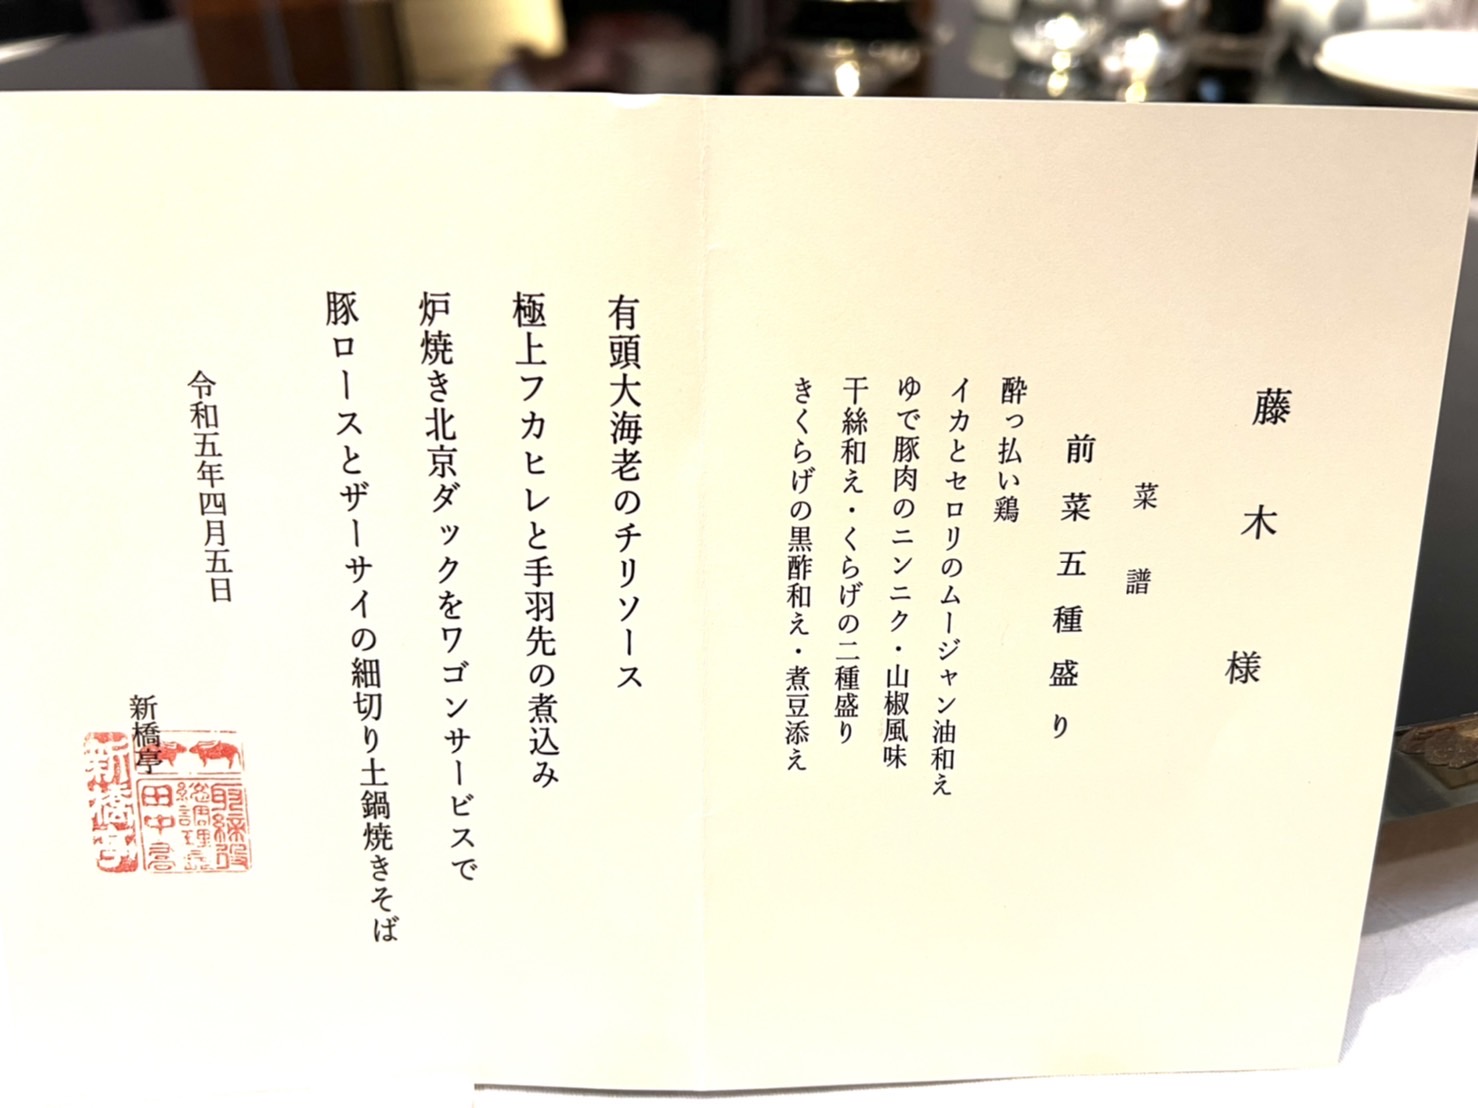 藤木様
菜譜
前菜五種盛り
酔っ払い鶏
イカとセロリのムージャン油和え
ゆで豚肉のニンニク・山椒風味
干絲和え・くらげの二種盛り
きくらげの黒酢和え・煮豆添え
有頭大海老のチリソース
極上フカヒレと手羽先の煮込み
炉焼き北京ダックをワゴンサービスで
豚ロースとザーサイの細切り土鍋焼きそば
令和五年四月五日
新橋亭
取締役
総調理長
田中
新橋亭